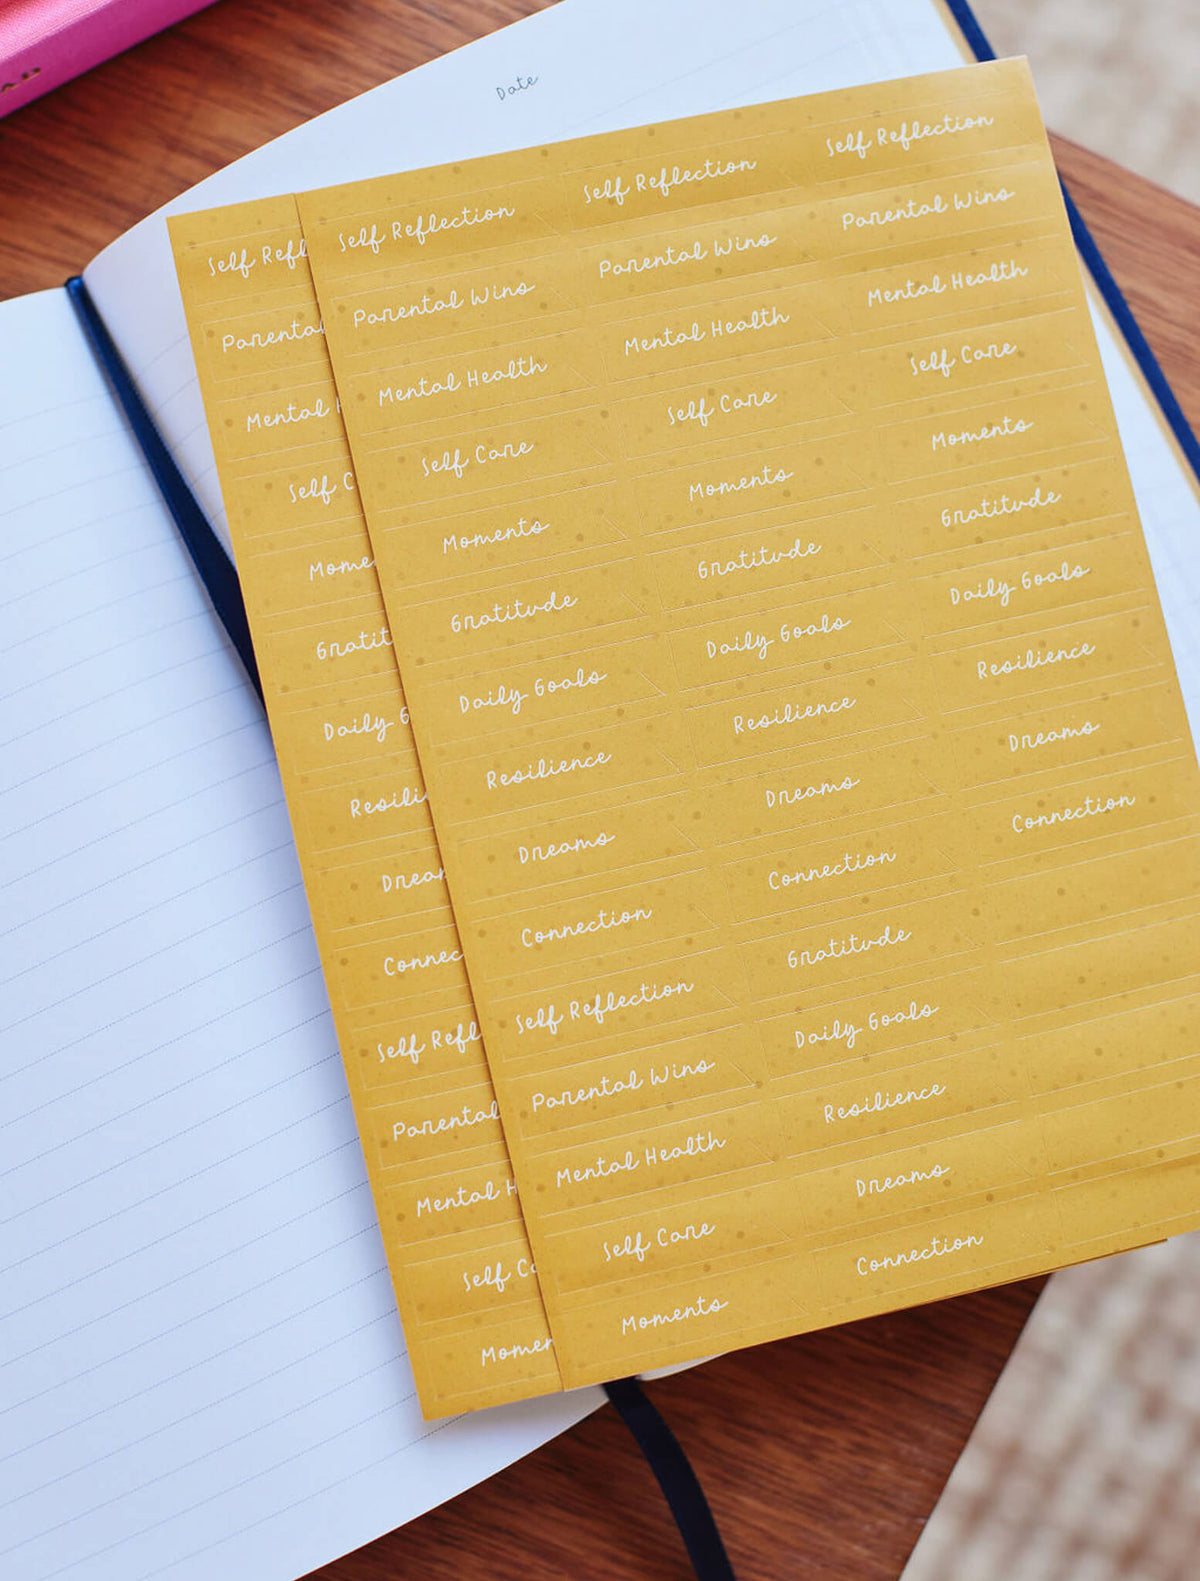 Date
Self Reflection Self Reflection Self Reflection
Parental Wins Parental Wins Parental Wins
Mental Health Mental Health Mental Health
Self Care Self Care Self Care
Moments Moments Moments
Gratitude Gratitude Gratitude
Daily Goals Daily Goals Daily Goals
Resilience Resilience Resilience
Dreams Dreams Dreams
Connection Connection Connection
Self Reflection Gratitude
Parental Wins Daily Goals
Mental Health Resilience
Self Care Dreams
Moments Connection
Self Refl
Parental
Mental H
Self C
Mome
Gratit
Daily G
Resili
Dream
Connec
Self Refl
Parental
Mental H
Self Ca
Momen